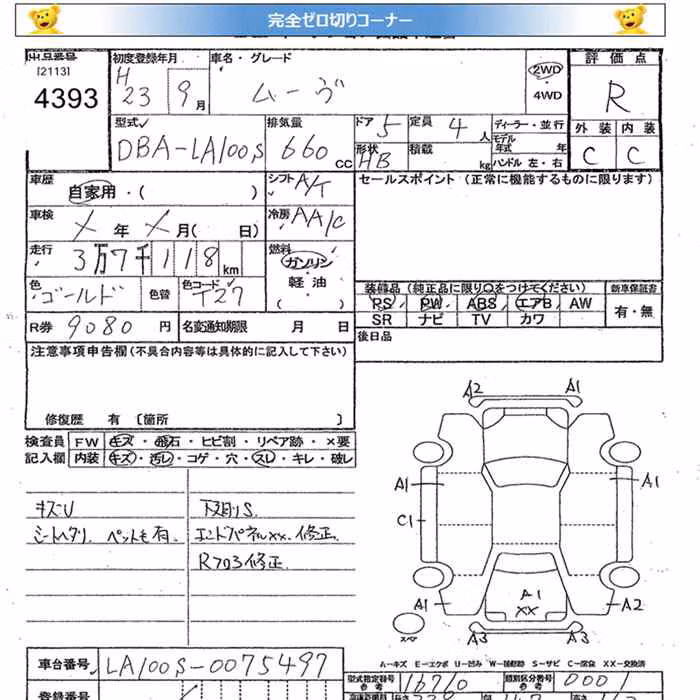 完全ゼロ切りコーナー
出品番号
[2113]
4393
初度登録年月
H
23 9月
車名・グレード
ムーヴ
2WD
・
4WD
評価点
R
外装 内装
C C
型式
DBA-LA100S
排気量
660 CC
ドア 5
定員 4 人
ディーラー・並行
モデル
年式 年
形状 HB
積載 kg
ハンドル 左・右
車歴
自家用・( )
シフト A/T
セールスポイント (正常に機能するものに限ります)
車検
X 年 X 月( 日)
冷房 AA/C
走行
3万7千118km
燃料
ガソリン
・
軽油
( )
色
ゴールド
色替
色コード
T27
装備品 (純正品に限り○をつけてください)
PS PW ABS エアB AW
SR ナビ TV カワ
新車保証書
有・無
R券 9080 円
名変通知期限 月 日
後日品
注意事項申告欄(不具合内容等は具体的に記入して下さい)
修復歴 有 [箇所 ]
検査員
記入欄
FW キズ・飛石・ヒビ割・リペア跡・×要
内装 キズ・汚レ・コゲ・穴・スレ・キレ・破レ
キズU
シートヘタリ ペットも有.
下廻りS.
エンドパネルxx. 修正.
Rフロ3修正.
A2 A1
A1 A1
C1
A1
XX
A1 A2
A3 A3
スペア
A―キズ E―エクボ U―凹み W―補修跡 S―サビ C―腐食 XX―交換済
車台番号 LA100S-0075497
型式指定番号 16710
類別区分番号 0001
登録番号